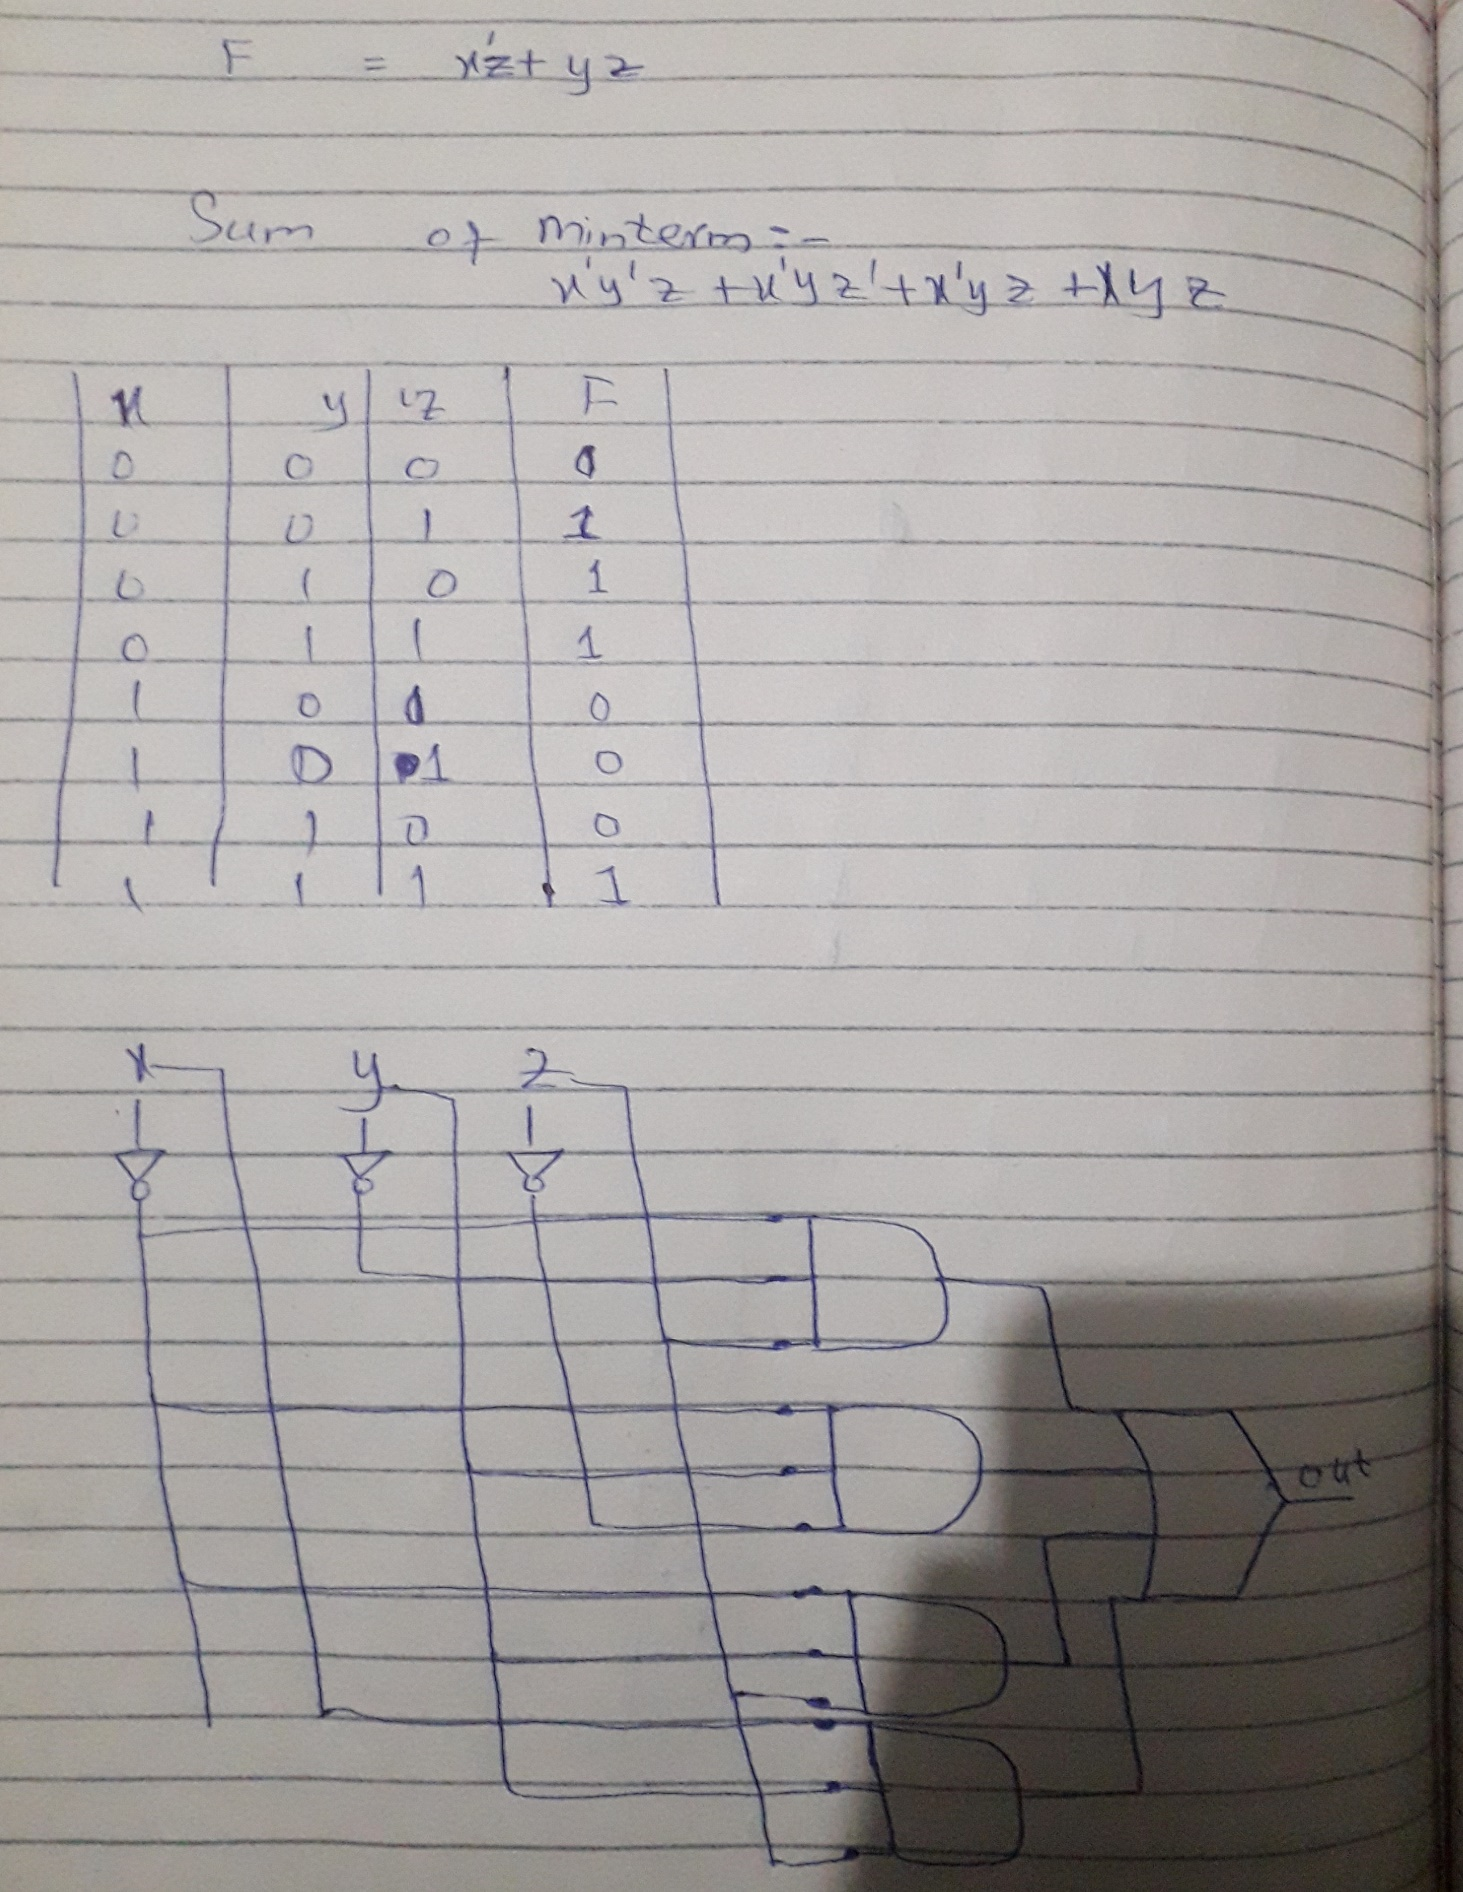 F = x'z + yz
Sum of minterm :-
x'y'z + x'yz' + x'yz + xyz
x y z F
0 0 0 0
0 0 1 1
0 1 0 1
0 1 1 1
1 0 0 0
1 0 1 0
1 1 0 0
1 1 1 1
x y z
out